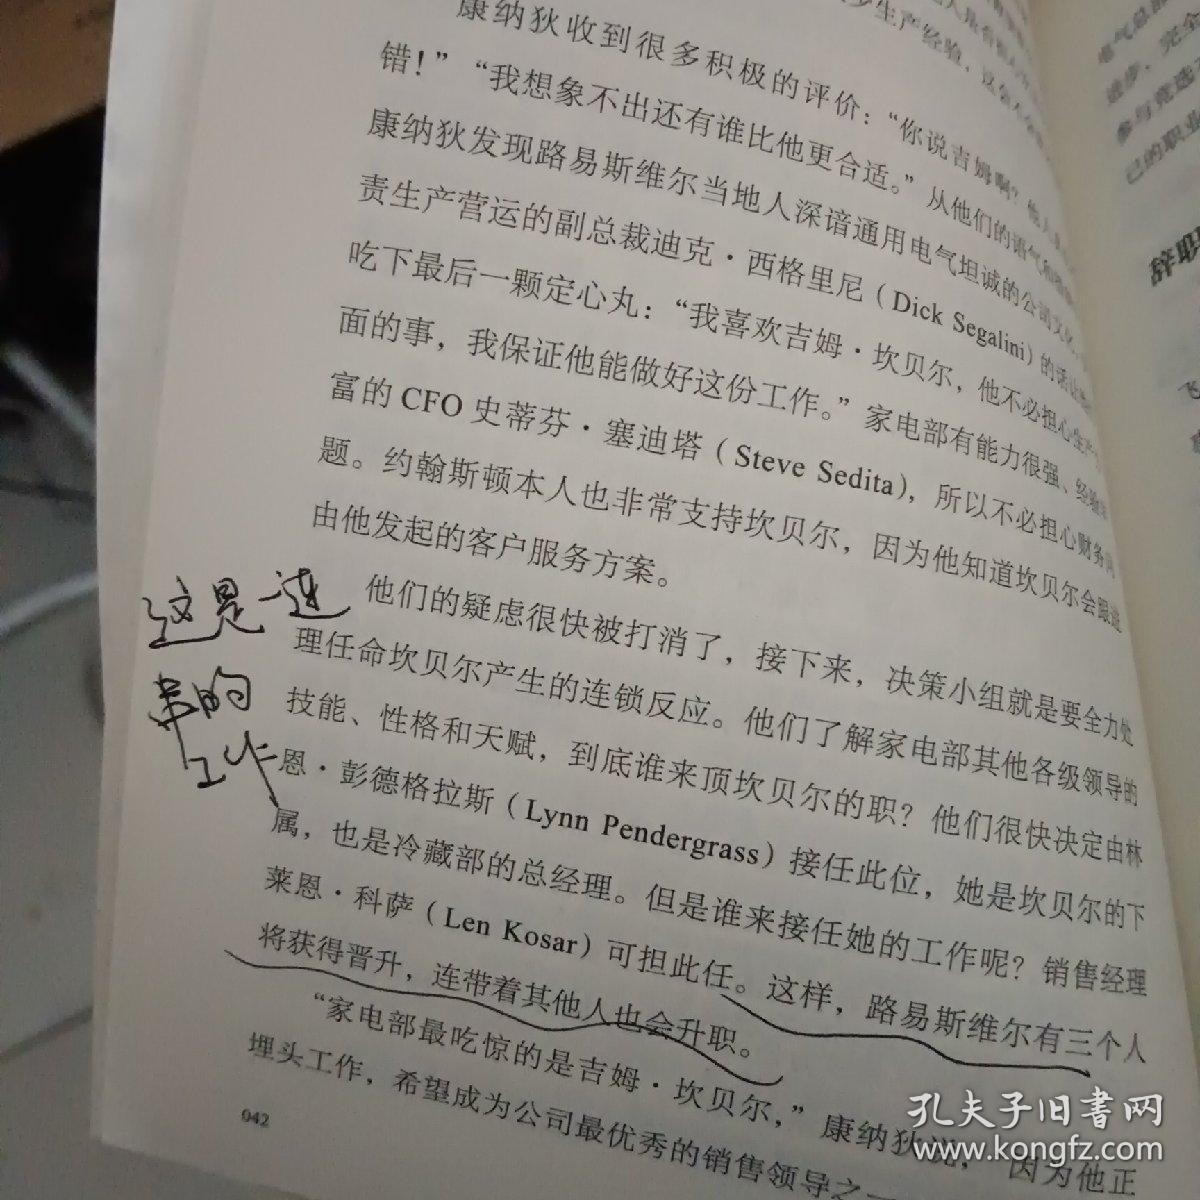 步生产经验，这会不会
康纳狄收到很多积极的评价：“你说吉姆啊？他人真
错！”“我想象不出还有谁比他更合适。”从他们的语气和
康纳狄发现路易斯维尔当地人深谙通用电气坦诚的公司文化，
责生产营运的副总裁迪克·西格里尼（Dick Segalini）的话让
吃下最后一颗定心丸：“我喜欢吉姆·坎贝尔，他不必担心生产方
面的事，我保证他能做好这份工作。”家电部有能力很强、经验丰
富的 CFO 史蒂芬·塞迪塔（Steve Sedita），所以不必担心财务问
题。约翰斯顿本人也非常支持坎贝尔，因为他知道坎贝尔会跟进
由他发起的客户服务方案。
他们的疑虑很快被打消了，接下来，决策小组就是要全力处
理任命坎贝尔产生的连锁反应。他们了解家电部其他各级领导的
技能、性格和天赋，到底谁来顶坎贝尔的职？他们很快决定由林
恩·彭德格拉斯（Lynn Pendergrass）接任此位，她是坎贝尔的下
属，也是冷藏部的总经理。但是谁来接任她的工作呢？销售经理
莱恩·科萨（Len Kosar）可担此任。这样，路易斯维尔有三个人
将获得晋升，连带着其他人也会升职。
“家电部最吃惊的是吉姆·坎贝尔，”康纳狄说，“因为他正
埋头工作，希望成为公司最优秀的销售领导之一
042
这是一连
串的
工作
电气总部
进步、完全
参与竞选
己的职业
辞职
飞
孔夫子旧书网
www.kongfz.com